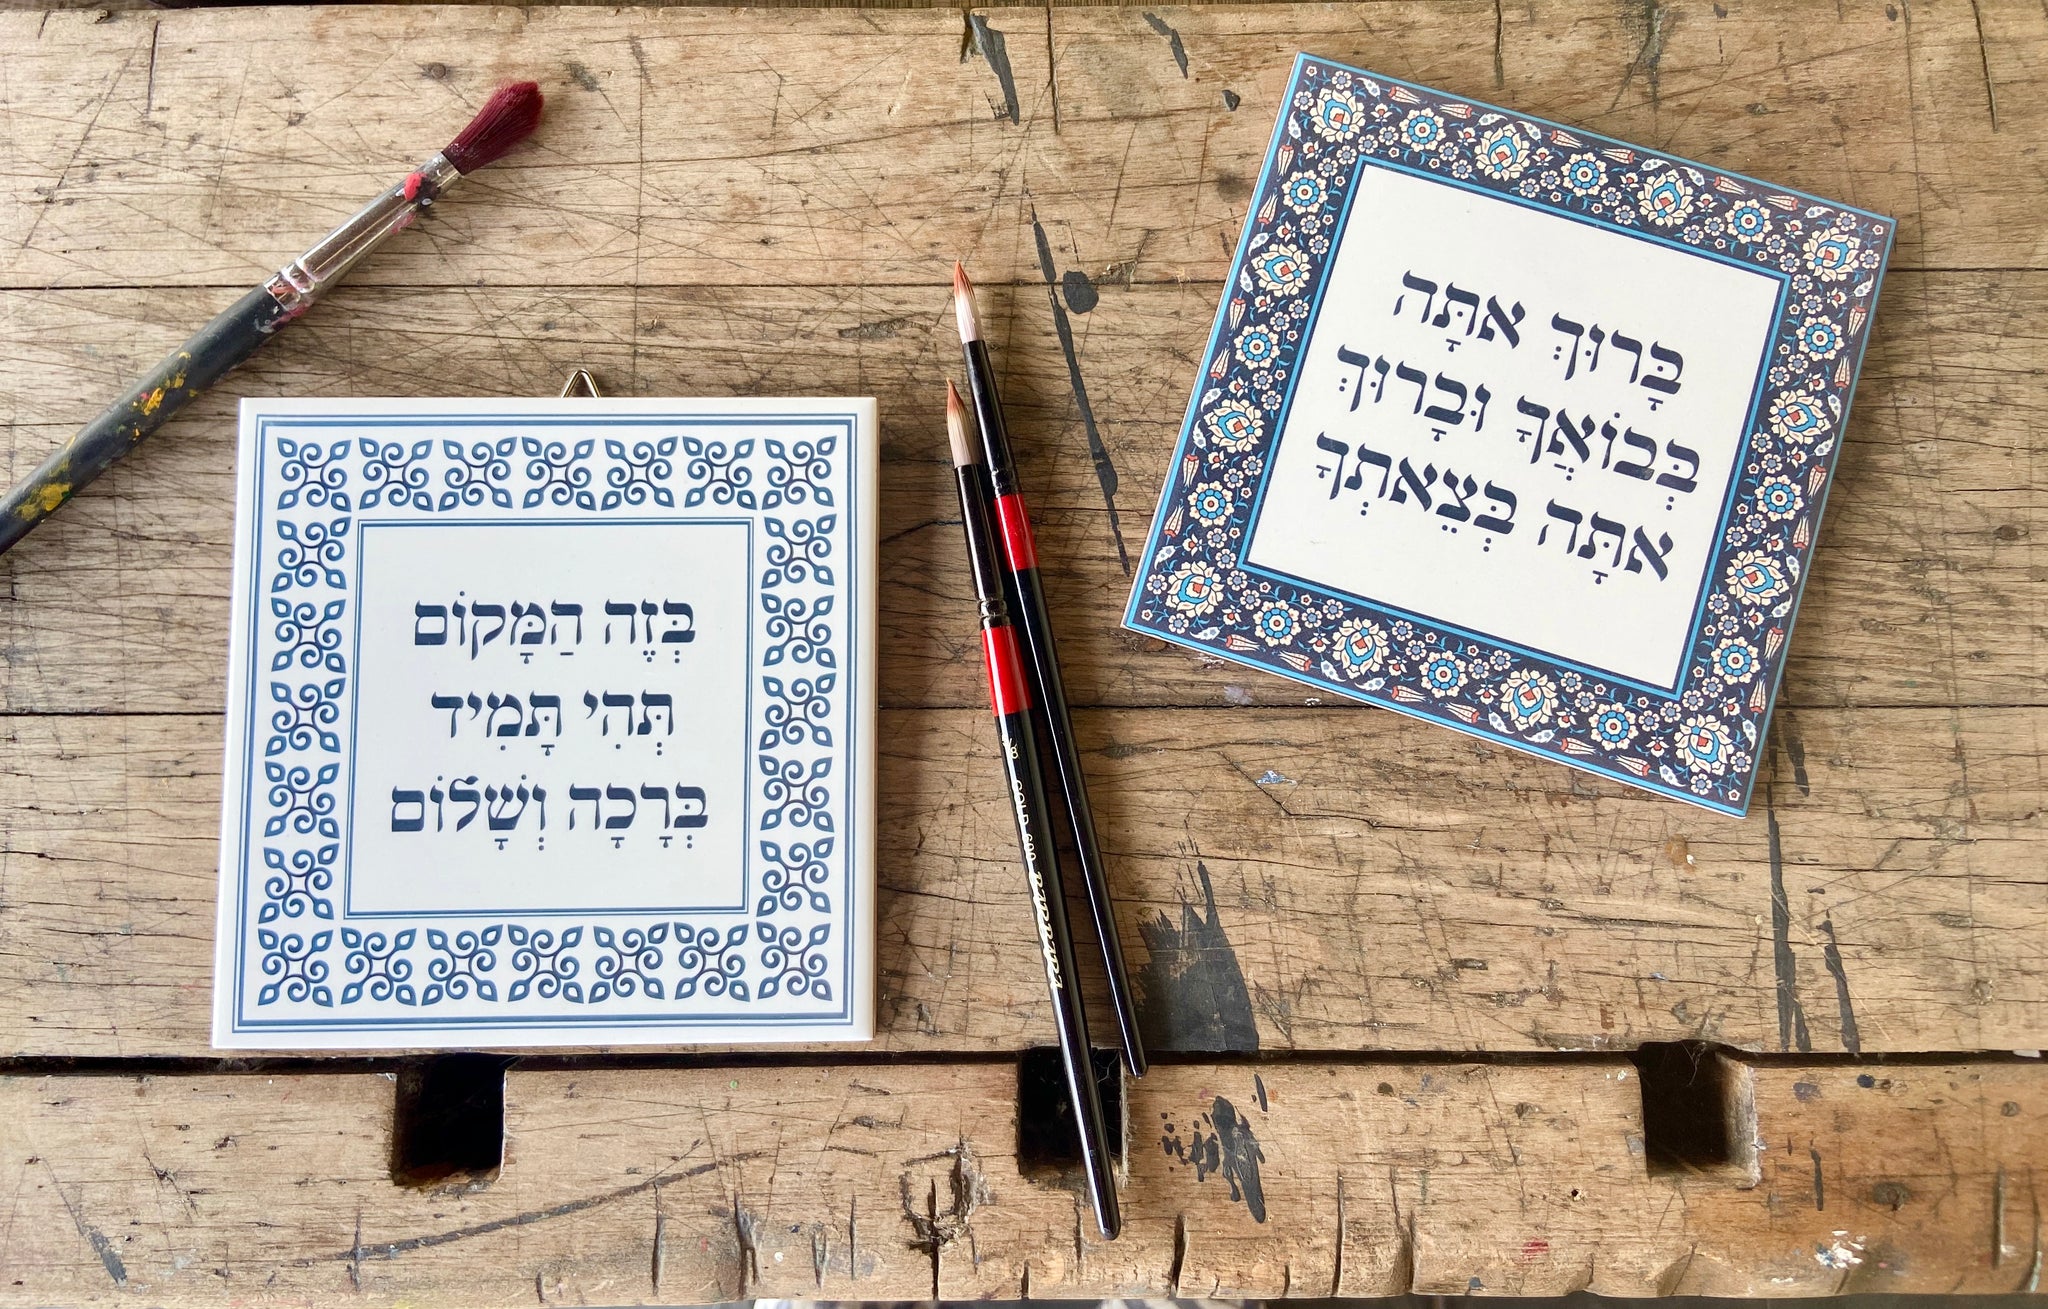 בְּזֶה הַמָּקוֹם
תְּהִי תָּמִיד
בְּרָכָה וְשָׁלוֹם
בָּרוּךְ אַתָּה
בְּבוֹאֲךָ וּבָרוּךְ
אַתָּה בְּצֵאתְךָ
GOLD 600 BARBARA